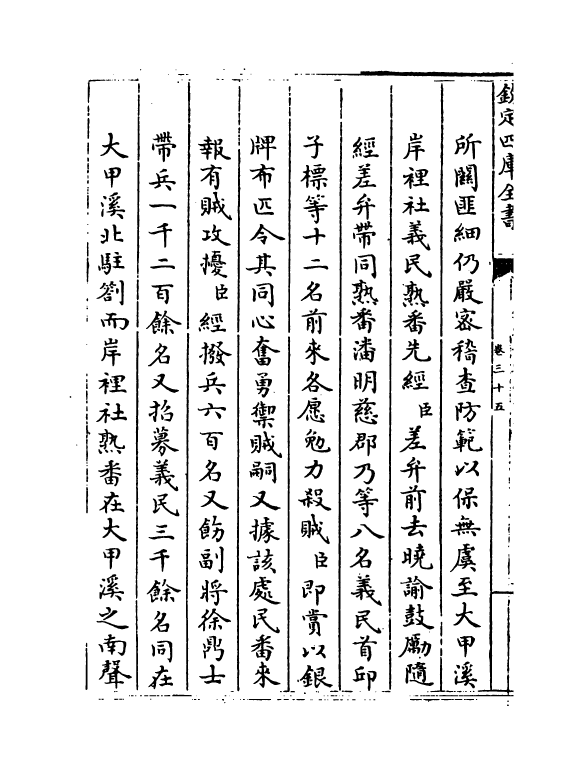 欽定四庫全書
卷三十五
所關匪細仍嚴密稽查防範以保無虞至大甲溪
岸裡社義民熟番先經臣差弁前去曉諭鼓勵隨
經差弁帶同熟番潘明慈郡乃等八名義民首邱
子標等十二名前來各愿勉力殺賊臣即賞以銀
牌布匹令其同心奮勇禦賊嗣又據該處民番來
報有賊攻擾臣經撥兵六百名又飭副將徐鼎士
帶兵一千二百餘名又招募義民三千餘名同在
大甲溪北駐劄而岸裡社熟番在大甲溪之南聲